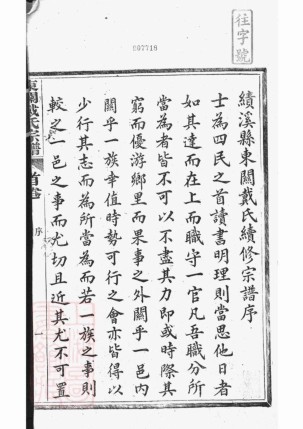 往字號
007718
績溪縣東關戴氏續修宗譜序
士為四民之首讀書明理則當思他日者
如其達而在上而職守一官凡吾職分所
當為者皆不可以不盡其力即或時際其
窮而優游鄉里而果事之外關乎一邑內
關乎一族幸值時勢可行之會亦皆得以
少行其志而為所當為而若一族之事則
較之一邑之事而尤切且近其尤不可置
東關戴氏宗譜
首卷
序
一